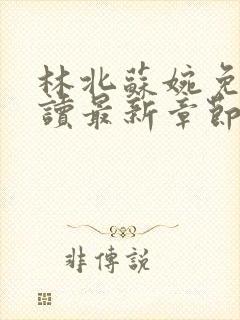 林北蘇婉免
讀最新章節
非傳說